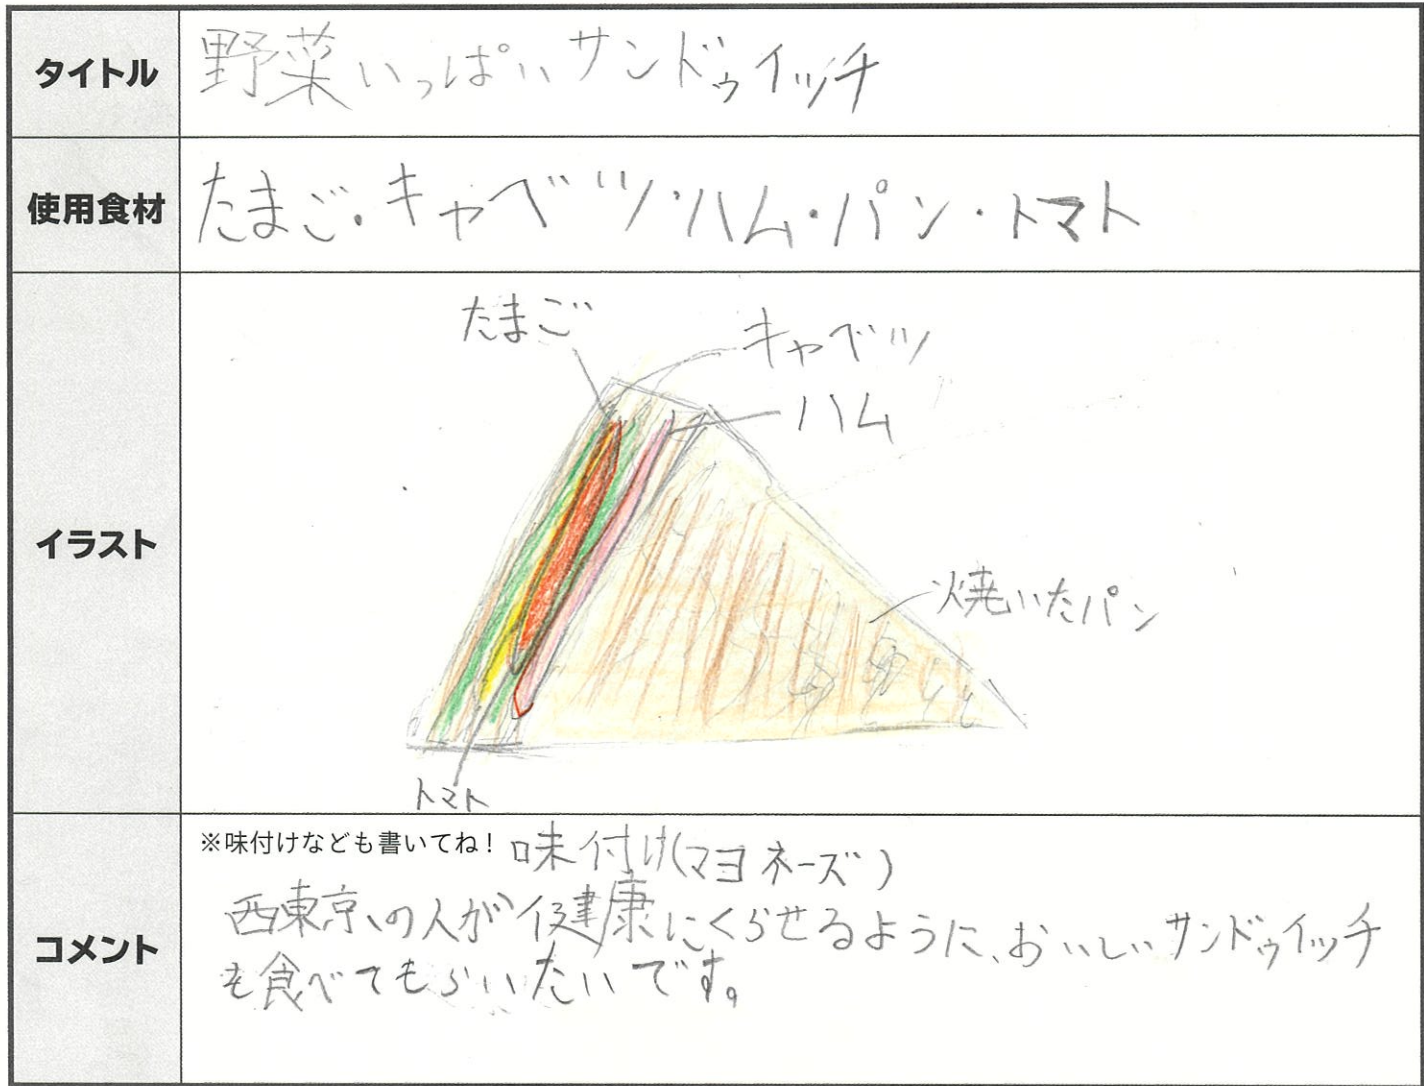 タイトル 野菜いっぱいサンドゥイッチ
使用食材 たまご・キャベツ・ハム・パン・トマト
たまご
キャベツ
ハム
イラスト
焼いたパン
トマト
※味付けなども書いてね! 味付け(マヨネーズ)
西東京の人が健康にくらせるように、おいしいサンドゥイッチ
コメント
を食べてもらいたいです。